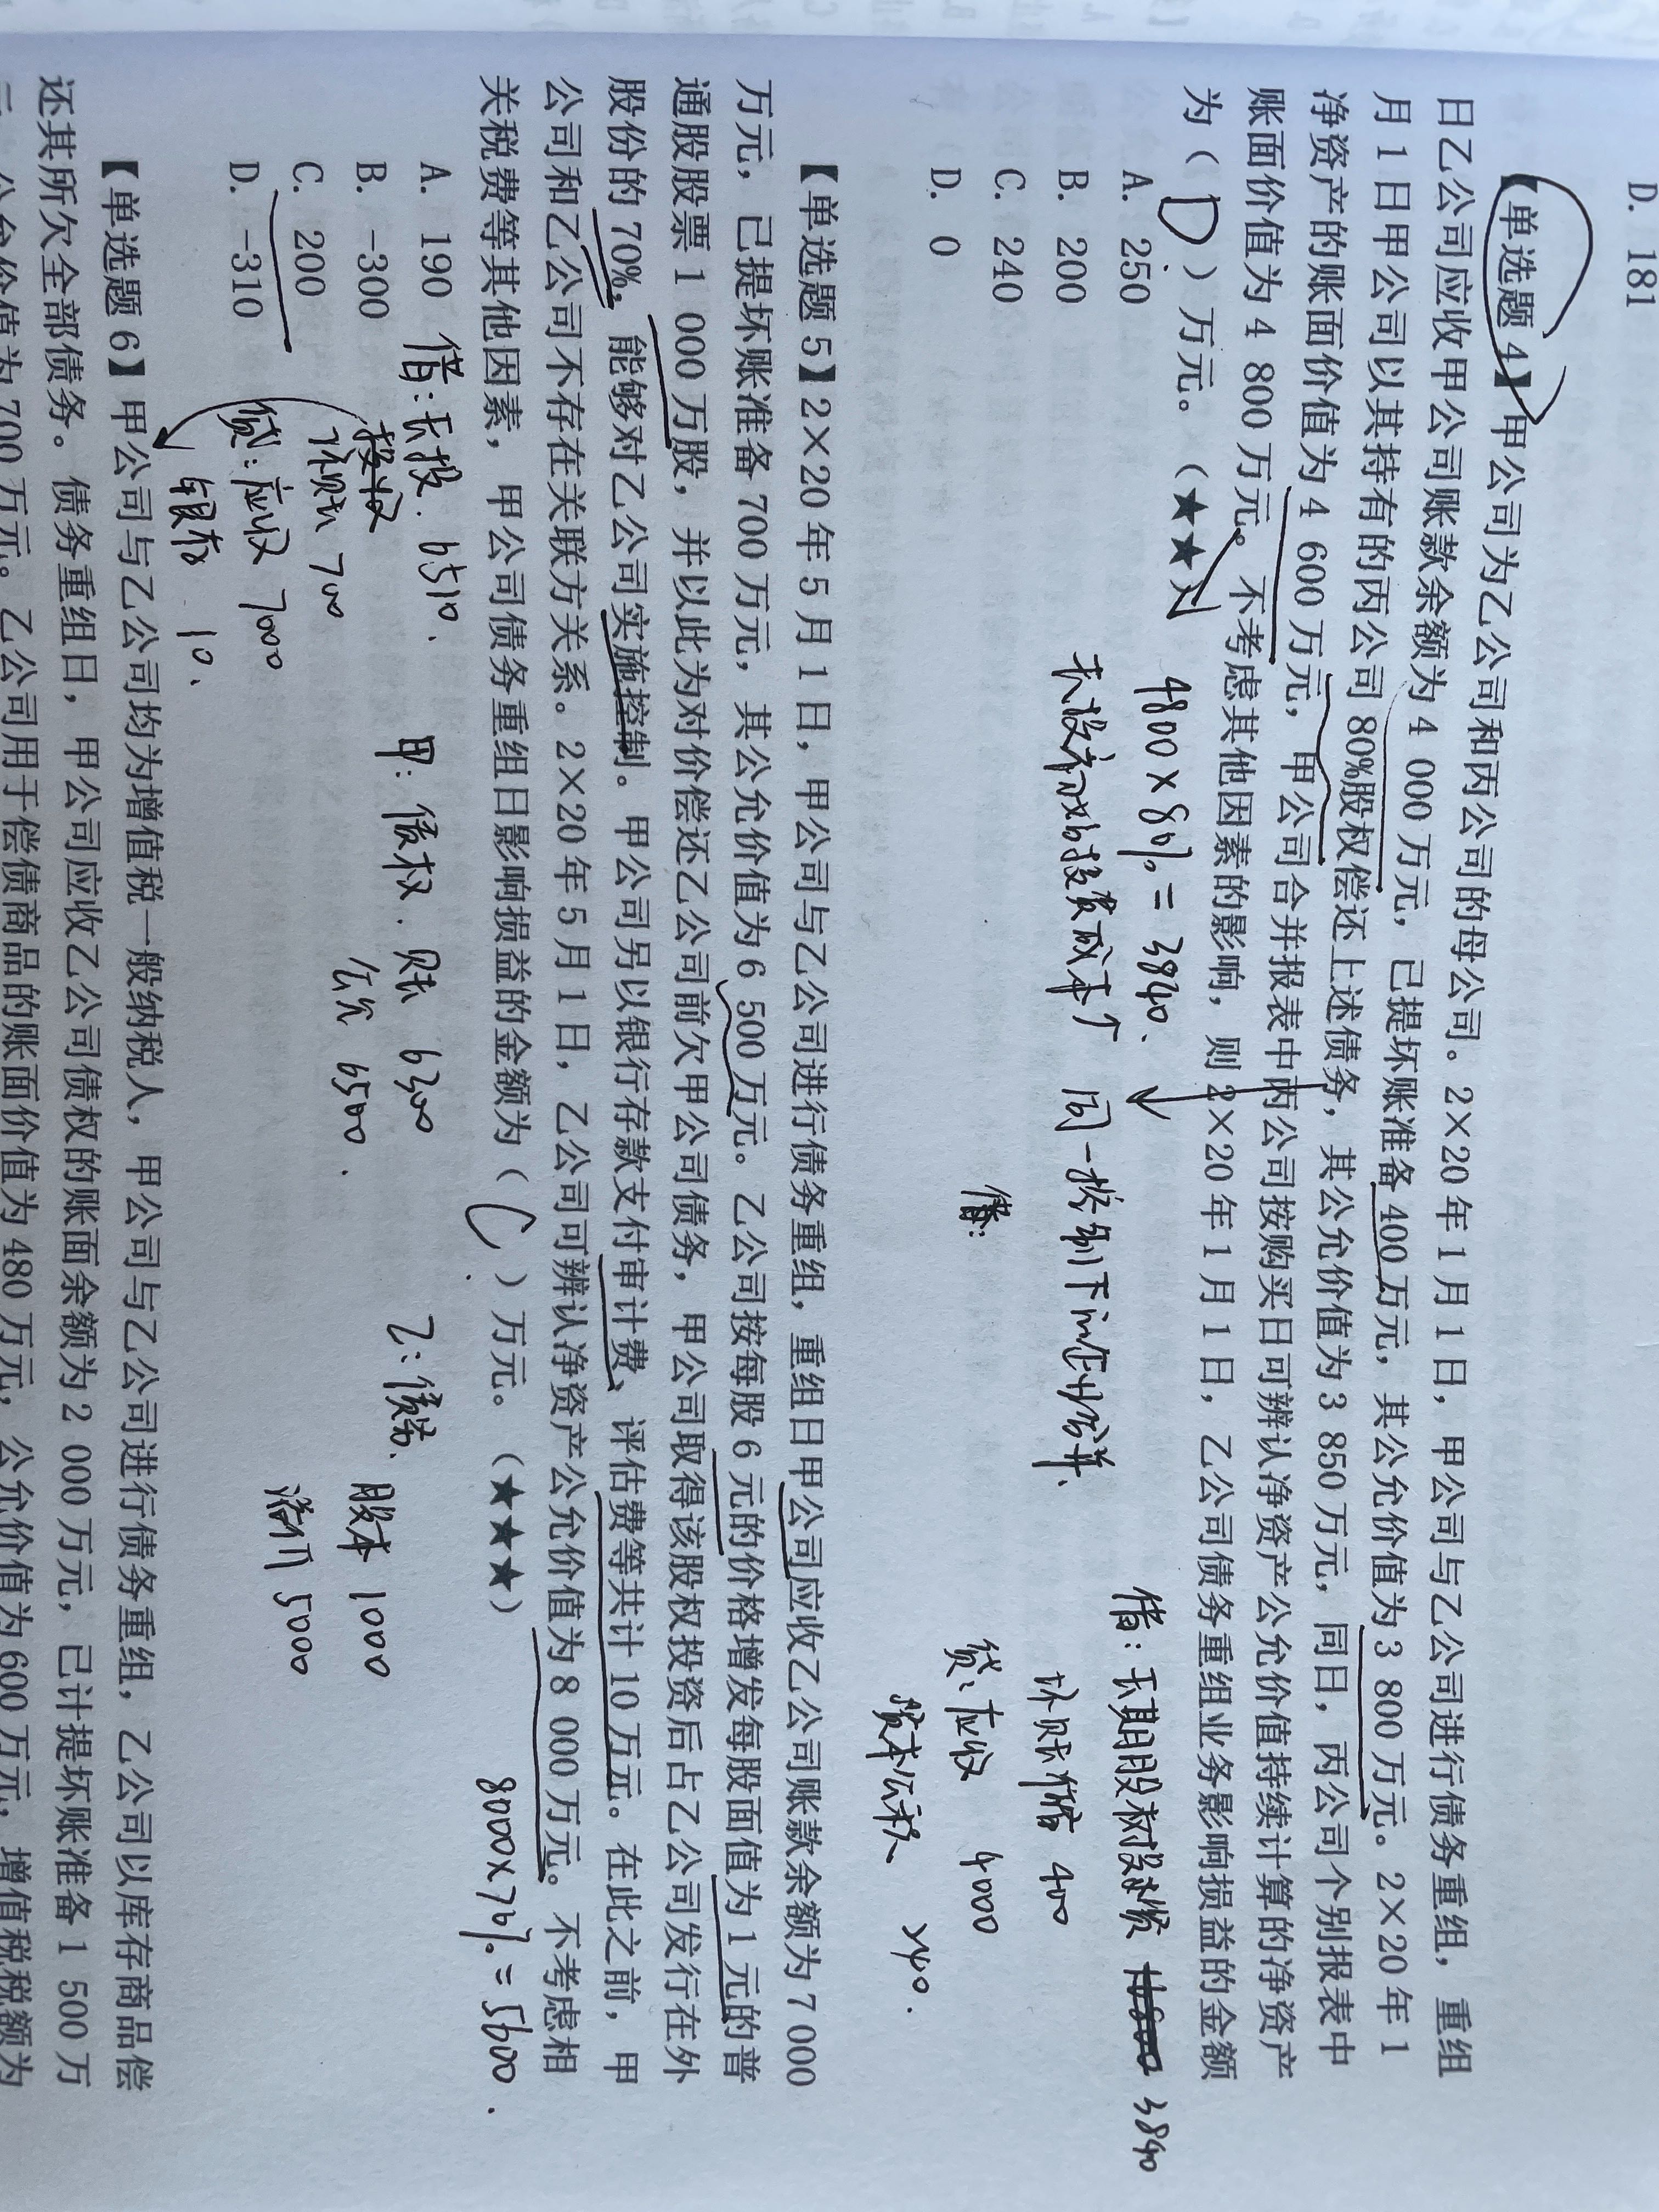 D. 181
【单选题 4】甲公司为乙公司和丙公司的母公司。2×20年1月1日，甲公司与乙公司进行债务重组，重组
日乙公司应收甲公司账款余额为4 000万元，已提坏账准备400万元，其公允价值为3 800万元。2×20年1
月1日甲公司以其持有的丙公司80%股权偿还上述债务，其公允价值为3 850万元，同日，丙公司个别报表中
净资产的账面价值为4 600万元，甲公司合并报表中丙公司按购买日可辨认净资产公允价值持续计算的净资产
账面价值为4 800万元。不考虑其他因素的影响，则2×20年1月1日，乙公司债务重组业务影响损益的金额
为（ D ）万元。（★★）
A. 250
B. 200
C. 240
D. 0
4800×80%=3840、
长投初始投资成本 同一控制下企业合并、
借：长期股权投资 3840
坏账准备 400
借：
贷：应收 4000
资本公积 240.
【单选题 5】2×20年5月1日，甲公司与乙公司进行债务重组，重组日甲公司应收乙公司账款余额为7 000
万元，已提坏账准备700万元，其公允价值为6 500万元。乙公司按每股6元的价格增发每股面值为1元的普
通股股票1 000万股，并以此为对价偿还乙公司前欠甲公司债务，甲公司取得该股权投资后占乙公司发行在外
股份的70%，能够对乙公司实施控制。甲公司另以银行存款支付审计费、评估费等共计10万元。在此之前，甲
公司和乙公司不存在关联方关系。2×20年5月1日，乙公司可辨认净资产公允价值为8 000万元。不考虑相
关税费等其他因素，甲公司债务重组日影响损益的金额为（ C ）万元。（★★★）
A. 190
B. -300
C. 200
D. -310
8000×70%=5600.
借：长投. 6510.
投收
坏账 700
贷：应收 7000
银存 10、
甲：债权. 账 6300
公允 6500.
乙：债务、
股本 1000
溢价 5000
【单选题 6】甲公司与乙公司均为增值税一般纳税人，甲公司与乙公司进行债务重组，乙公司以库存商品偿
还其所欠全部债务。债务重组日，甲公司应收乙公司债权的账面余额为2 000万元，已计提坏账准备1 500万
元，公允价值为700万元。乙公司用于偿债商品的账面价值为480万元，公允价值为600万元，增值税税额为